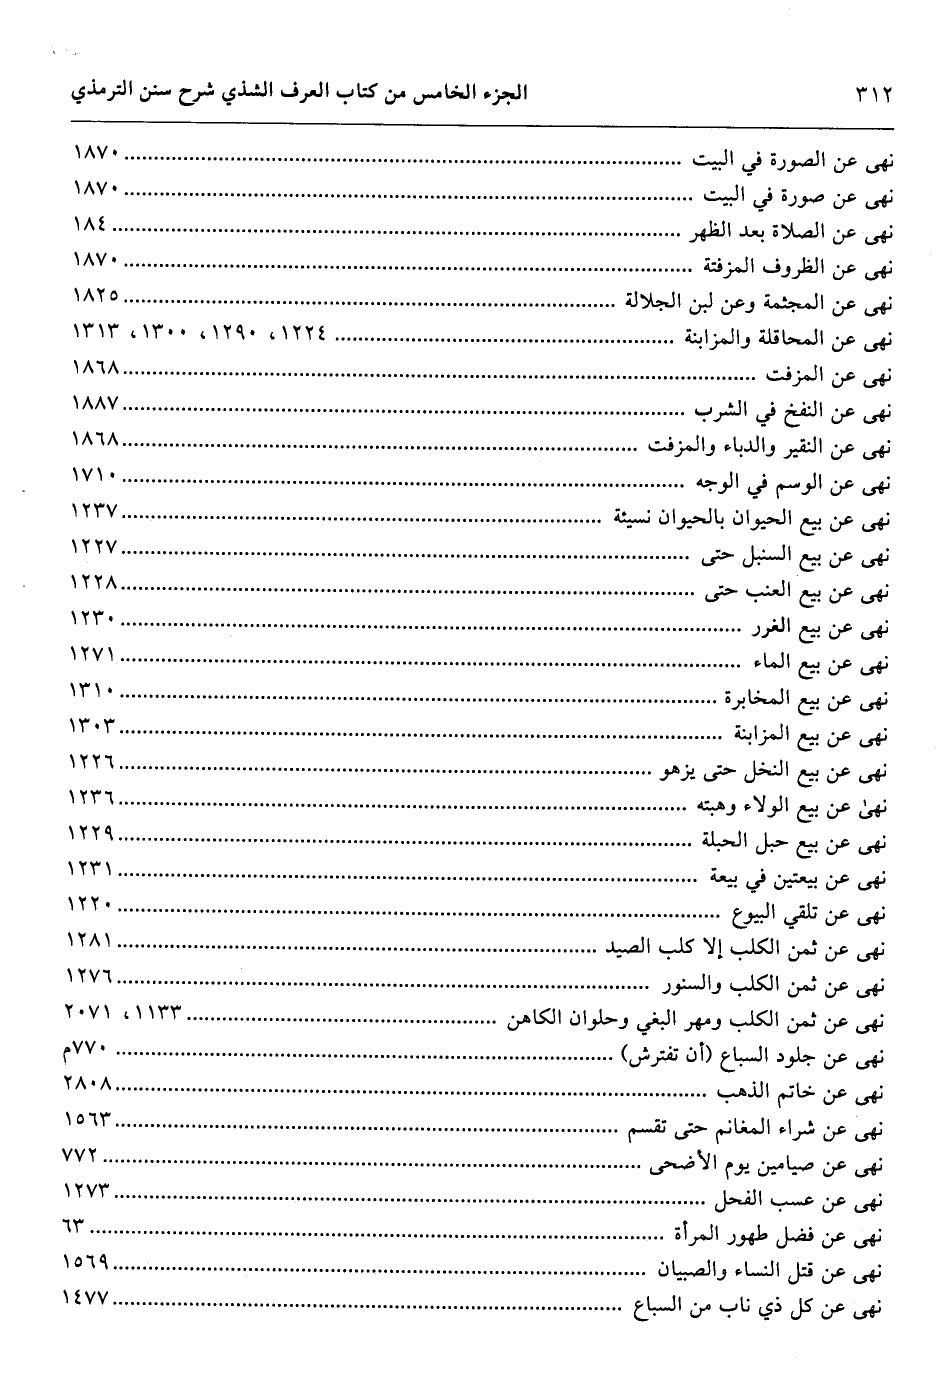 ٣١٢ الجزء الخامس من كتاب العرف الشذي شرح سنن الترمذي
نهى عن الصورة في البيت ........ ١٨٧٠
نهى عن صورة في البيت ........ ١٨٧٠
نهى عن الصلاة بعد الظهر ........ ١٨٤
نهى عن الظروف المزفتة ........ ١٨٧٠
نهى عن المجثمة وعن لبن الجلالة ........ ١٨٢٥
نهى عن المحاقلة والمزابنة ........ ١٢٢٤، ١٢٩٠، ١٣٠٠، ١٣١٣
نهى عن المزفت ........ ١٨٦٨
نهى عن النفخ في الشرب ........ ١٨٨٧
نهى عن النقير والدباء والمزفت ........ ١٨٦٨
نهى عن الوسم في الوجه ........ ١٧١٠
نهى عن بيع الحيوان بالحيوان نسيئة ........ ١٢٣٧
نهى عن بيع السنبل حتى ........ ١٢٢٧
نهى عن بيع العنب حتى ........ ١٢٢٨
نهى عن بيع الغرر ........ ١٢٣٠
نهى عن بيع الماء ........ ١٢٧١
نهى عن بيع المخابرة ........ ١٣١٠
نهى عن بيع المزابنة ........ ١٣٠٣
نهى عن بيع النخل حتى يزهو ........ ١٢٢٦
نهىٰ عن بيع الولاء وهبته ........ ١٢٣٦
نهى عن بيع حبل الحبلة ........ ١٢٢٩
نهى عن بيعتين في بيعة ........ ١٢٣١
نهى عن تلقي البيوع ........ ١٢٢٠
نهى عن ثمن الكلب إلا كلب الصيد ........ ١٢٨١
نهى عن ثمن الكلب والسنور ........ ١٢٧٦
نهى عن ثمن الكلب ومهر البغي وحلوان الكاهن ........ ١١٣٣، ٢٠٧١
نهى عن جلود السباع (أن تفترش) ........ ٧٧٠م
نهى عن خاتم الذهب ........ ٢٨٠٨
نهى عن شراء المغانم حتى تقسم ........ ١٥٦٣
نهى عن صيامين يوم الأضحى ........ ٧٧٢
نهى عن عسب الفحل ........ ١٢٧٣
نهى عن فضل طهور المرأة ........ ٦٣
نهى عن قتل النساء والصبيان ........ ١٥٦٩
نهى عن كل ذي ناب من السباع ........ ١٤٧٧